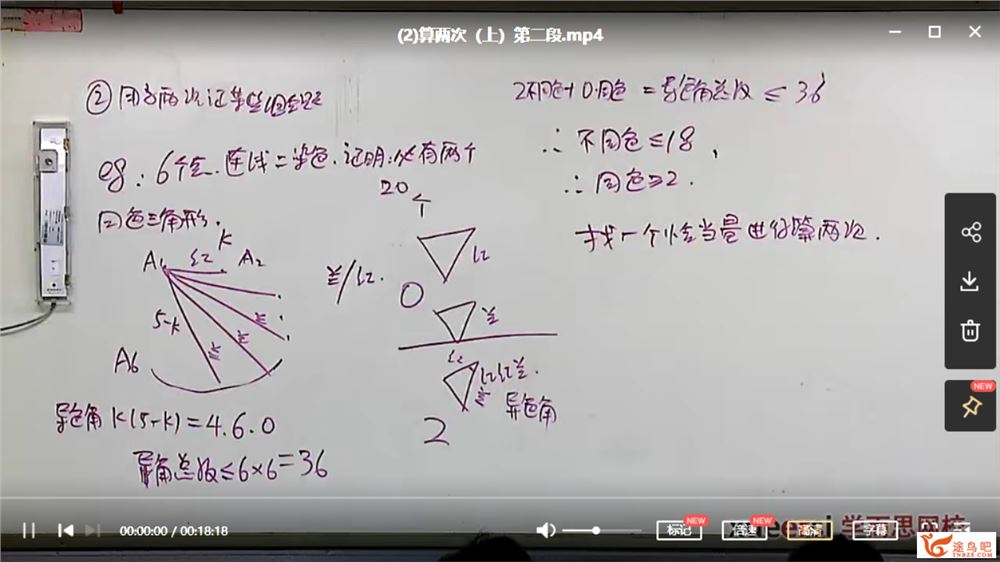 (2)算两次（上）第二段.mp4
② 用算两次证某些组合题
eg：6个点.连线二染色.证明：必有两个
同色三角形.
20个
A₁ 红 K A₂
5-K
兰 兰 兰
A6
兰/红.
红
0
兰
红 红红兰.
兰 异色角
2
异色角 K(5-K)=4.6.0
异角总数≤6×6=36
2不同色+0.同色=异色角总数≤36
∴ 不同色≤18，
∴ 同色≥2.
找一个恰当量进行算两次.
NEW
00:00:00 / 00:18:18
标记 NEW
倍速 NEW
高清
字幕
学而思网校
途鸟吧
TNBZS.COM